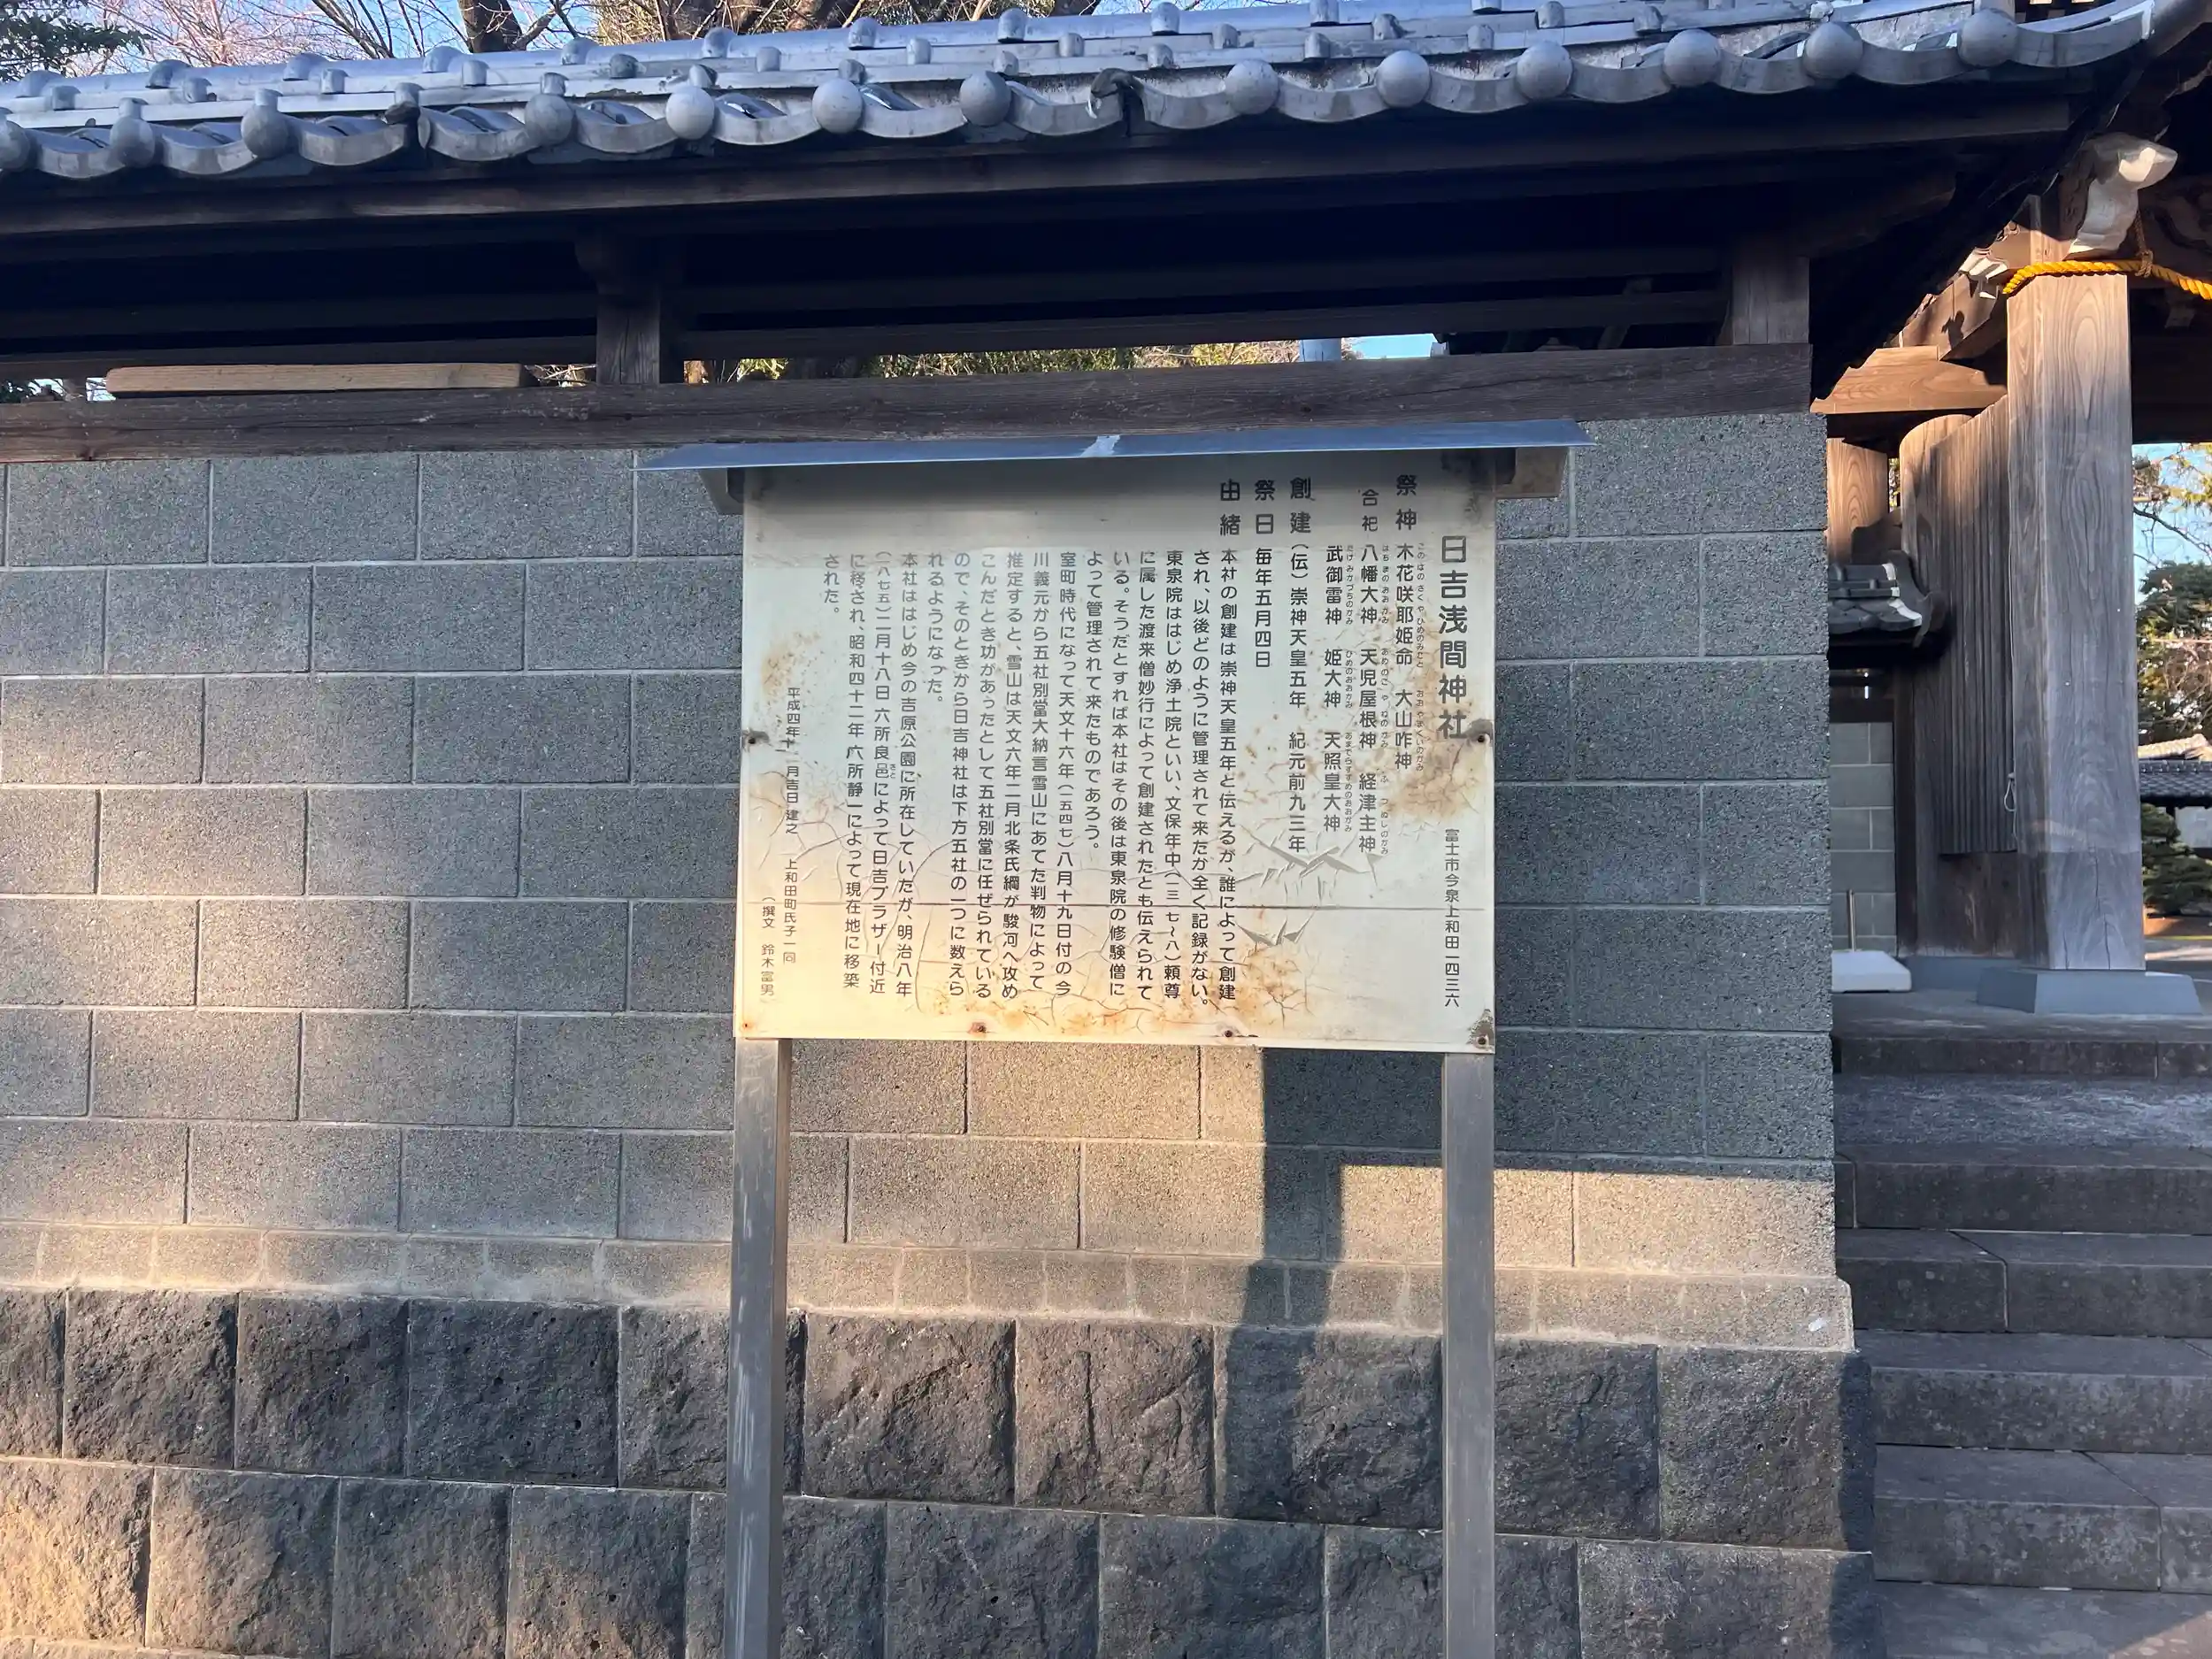 日吉浅間神社
富士市今泉上和田一四三六
祭神 木花咲耶姫命 大山咋神
合祀 八幡大神 天児屋根神 経津主神
武御雷神 姫大神 天照皇大神
創建(伝)崇神天皇五年 紀元前九三年
祭日 毎年五月四日
由緒 本社の創建は崇神天皇五年と伝えるが、誰によって創建
され、以後どのように管理されて来たか全く記録がない。
東泉院ははじめ浄土院といい、文保年中(一三一七〜八)頼尊
に属した渡来僧妙行によって創建されたとも伝えられて
いる。そうだとすれば本社はその後は東泉院の修験僧に
よって管理されて来たものであろう。
室町時代になって天文十六年(一五四七)八月十九日付の今
川義元から五社別當大納言雪山にあてた判物によって
推定すると、雪山は天文六年二月北条氏綱が駿河へ攻め
こんだとき功があったとして五社別當に任ぜられている
ので、そのときから日吉神社は下方五社の一つに数えら
れるようになった。
本社ははじめ今の吉原公園に所在していたが、明治八年
(一八七五)二月十八日六所良邑によって日吉プラザー付近
に移され、昭和四十二年六所静一によって現在地に移築
された。
平成四年十一月吉日 建之 上和田町氏子一同
(撰文 鈴木富男)